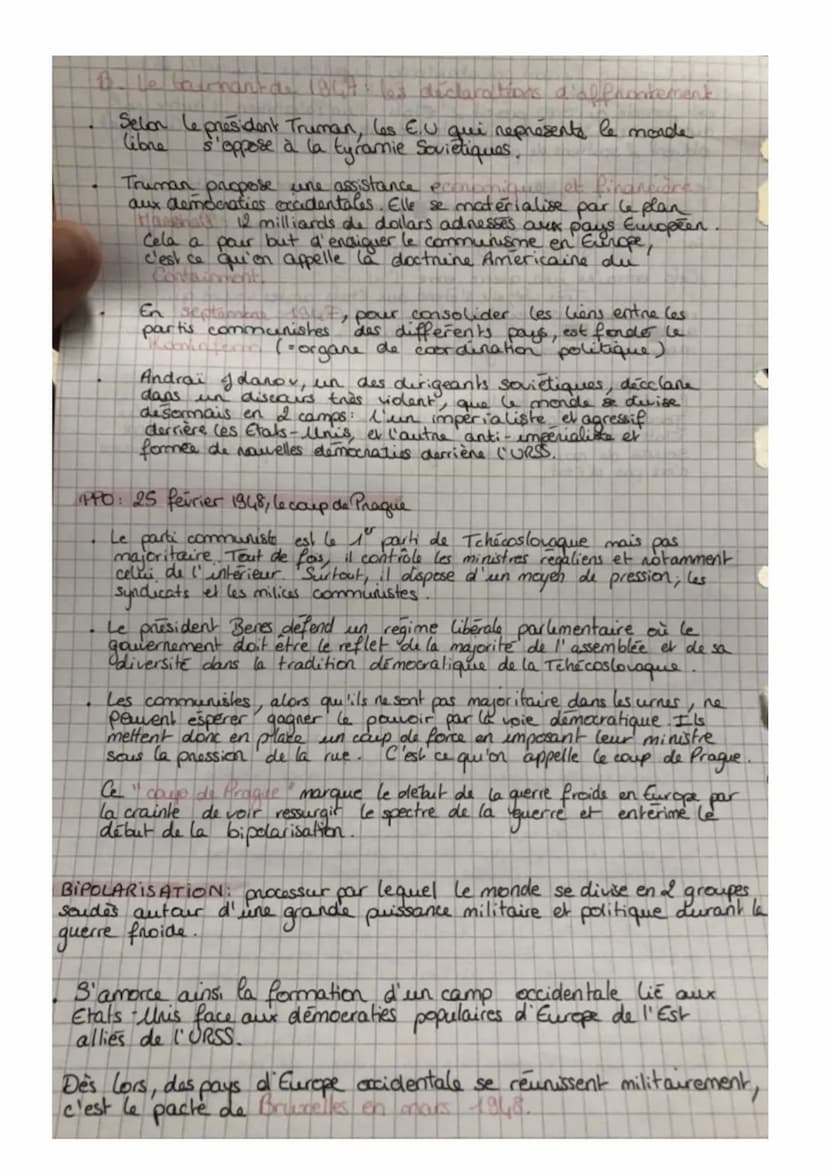 B. Le tournant de 1947 : les déclarations d'affrontement
• Selon le président Truman, les E.U qui représente le monde
libre s'oppose à la tyramie Soviétiques.
• Truman propose une assistance économique et financière
aux démocraties occidentales. Elle se matérialise par le plan
Marshall : 12 milliards de dollars adressés aux pays Européen.
Cela a pour but d'endiguer le communisme en Europe,
c'est ce qu'on appelle la doctrine Américaine du
Containment.
• En Septembre 1947, pour consolider les liens entre les
partis communistes des différents pays, est fondér le
Kominform (=organe de coordination politique)
• Andraï Jdanov, un des dirigeants soviétiques, décclare
dans un discours très violent, que le monde se divise
désormais en 2 camps : l'un impérialiste et agressif
derrière les Etats-Unis, et l'autre anti-impérialiste et
formée de nouvelles démocraties derrière l'URSS.
PPO : 25 février 1948, le coup de Prague
• Le parti communiste est le 1er parti de Tchécoslovaque mais pas
majoritaire. Tout de fois, il contrôle les ministres régaliens et notamment
celui de l'intérieur. Surtout, il dispose d'un moyen de pression ; les
syndicats et les milices communistes.
• Le président Benes défend un régime libérale parlementaire où le
gouvernement doit être le reflet de la majorité de l'assemblée et de sa
diversité dans la tradition démocratique de la Tchécoslovaque.
• Les communistes, alors qu'ils ne sont pas majoritaire dans les urnes, ne
peuvent espérer gagner le pouvoir par la voie démocratique. Ils
mettent donc en place un coup de force en imposant leur ministre
sous la pression de la rue. C'est ce qu'on appelle le coup de Prague.
Ce "coup de Prague" marque le début de la guerre froide en Europe par
la crainte de voir ressurgir le spectre de la guerre et entérime le
début de la bipolarisation.
BIPOLARISATION : processur par lequel le monde se divise en 2 groupes
soudés autour d'une grande puissance militaire et politique durant la
guerre froide.
• S'amorce ainsi la formation d'un camp occidentale lié aux
Etats-Unis face aux démocraties populaires d'Europe de l'Est
alliés de l'URSS.
Dès lors, des pays d'Europe occidentale se réunissent militairement,
c'est le pacte de Bruxelles en mars 1948.